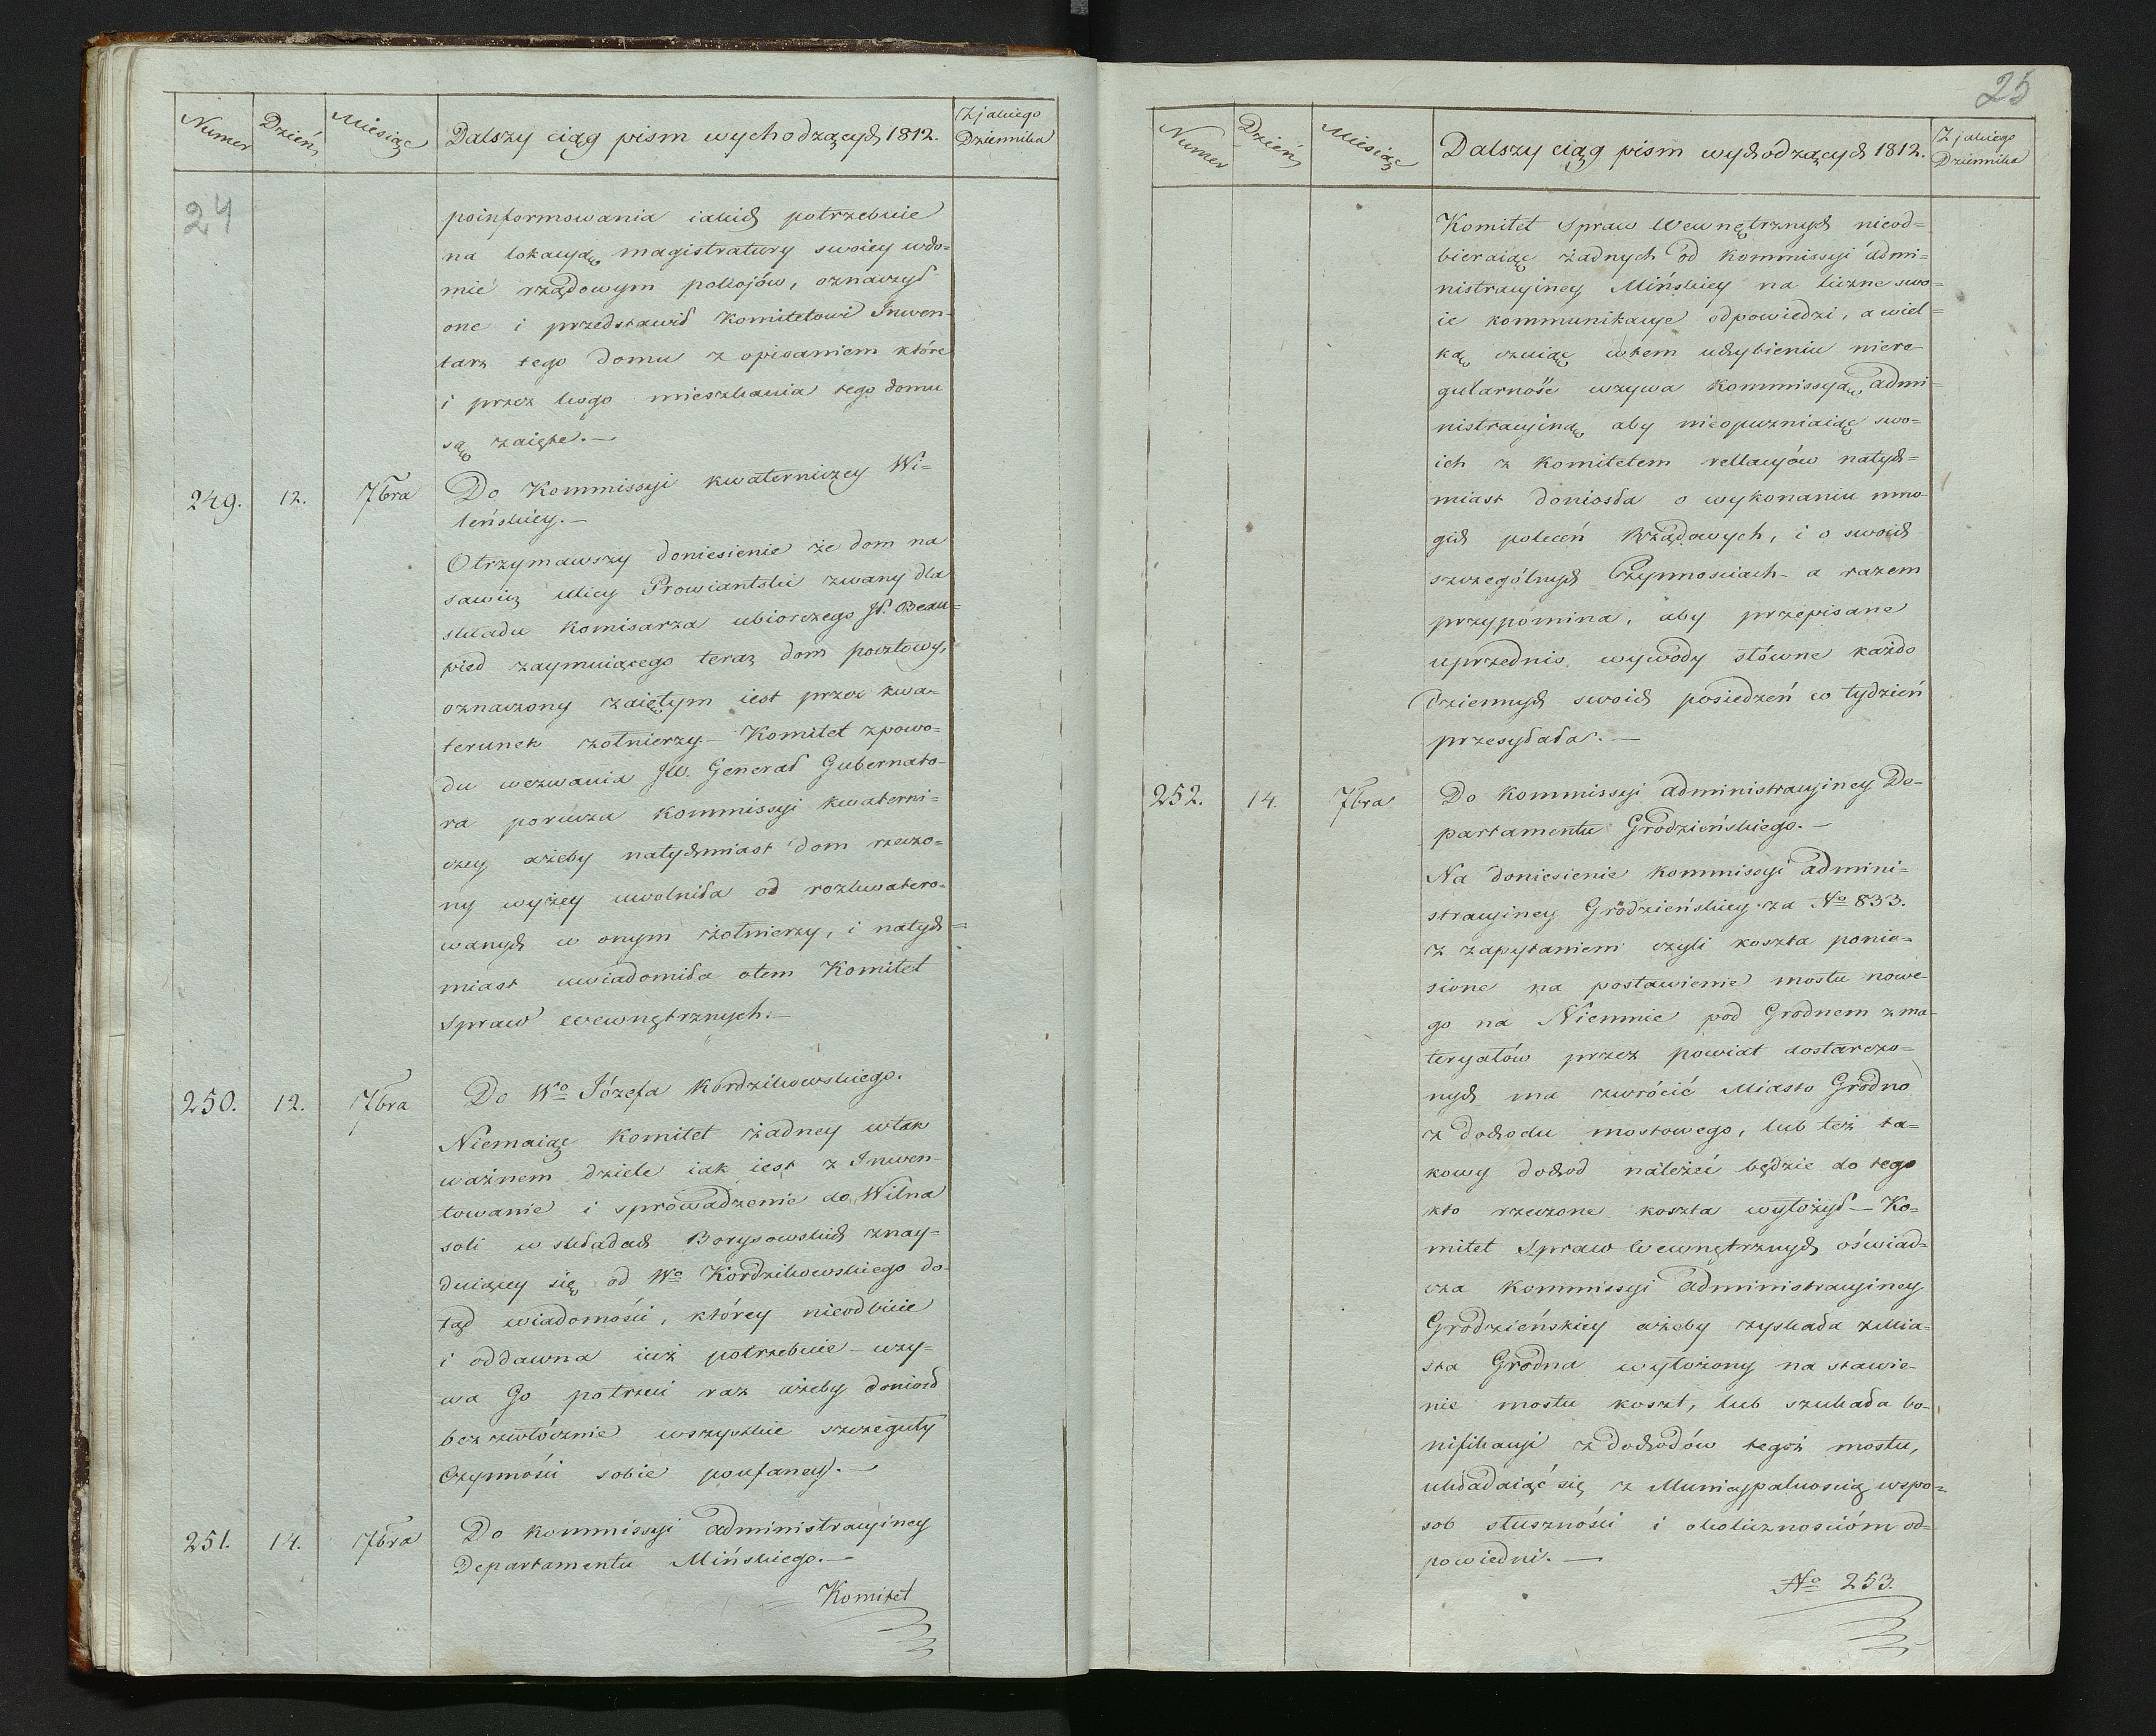 Numer Dzień Miesiąc Dalszy ciąg pism wychodzących 1812. Z jakiego Dziennika
24
poinformowania iakich potrzebuie
na lokacyą magistratury swoiey wdo=
mie rządowym pokojów, oznaczył
one i przedstawił Komitetowi Inwen-
tarz tego domu z opisaniem które
i przez kogo mieszkania tego domu
są zaięte.—
249. 12. 7bra Do Kommissyi kwaterniczey Wi=
leńskiey.—
Otrzymawszy doniesienie że dom na
sawicz ulicy Prowiantski zwany dla
składu Komisarza ubiorczego JP. Beau=
pied zaymuiącego teraz dom pocztowy,
oznaczony zaiętym iest przez kwa-
terunek żołnierzy— Komitet zpowo=
du wezwania JW. Generał Gubernato-
ra porucza Kommissyi kwaterni=
czey ażeby natychmiast dom rzeczo=
ny wyżey uwolniła od rozkwatero-
wanych w onym żołnierzy, i natych=
miast uwiadomiła otem Komitet
Spraw wewnętrznych.—
250. 12. 7bra Do Wo Józefa Kordzikowskiego.
Niemaiąc Komitet żadney wtak
ważnem dziele iak iest z Inwen-
towanie i sprowadzenie do Wilna
soli w składach Borysowskich znay=
duiącey się od Wo Kordzikowskiego do-
tąd wiadomości, którey nieodbicie
i oddawna iuż potrzebuie— wzy=
wa Go potrzeci raz ażeby doniosł
bezzwłócznie wszystkie szczeguły
Czynności sobie poufaney.—
251. 14. 7bra Do Kommissyi administracyiney
Departamentu Mińskiego.—
Komitet
25
Numer Dzień Miesiąc Dalszy ciąg pism wychodzących 1812. Z jakiego Dziennika
Komitet Spraw Wewnętrznych nieod=
bieraiąc żadnych od Kommissyi admi=
nistracyiney Mińskiey na liczne swo=
ie kommunikacye odpowiedzi, a wiel=
ką czuiąc wtem uchybieniu niere-
gularność wzywa Kommissyą admi-
nistracyiną aby nieopuzniaiąc swo=
ich z Komitetem rellacyów natych=
miast doniosła o wykonaniu mno-
gich poleceń Rządowych, i o swoich
szczególnych Czynnosciach— a razem
przypomina, aby przepisane
uprzednio wywody słówne każdo
dziennych swoich posiedzeń w tydzień
przesyłała.—
252. 14. 7bra Do Kommissyi administracyiney De-
partamentu Grodzieńskiego.—
Na doniesienie Kommissyi admini=
stracyiney Grodzieńskiey za No 833.
z zapytaniem czyli koszta ponie=
sione na postawienie mostu nowe-
go na Niemnie pod Grodnem z ma-
teryałów przez powiat dostarczo=
nych ma zwrócić Miasto Grodno
z dochodu mostowego, lub też ta=
kowy dochod należeć będzie do tego
kto rzeczone koszta wyłożył— Ko=
mitet Spraw Wewnętrznych oświad=
cza Kommissyi administracyiney
Grodzieńskiey ażeby zyskała z Mia=
sta Grodna wyłożony na stawie-
nie mostu koszt, lub szukała bo-
nifikacyi z dochodów tegoż mostu,
układaiąć się z Municypalnoscią wspo=
sob słuszności i okolicznościóm od=
powiedni.—
No 253.